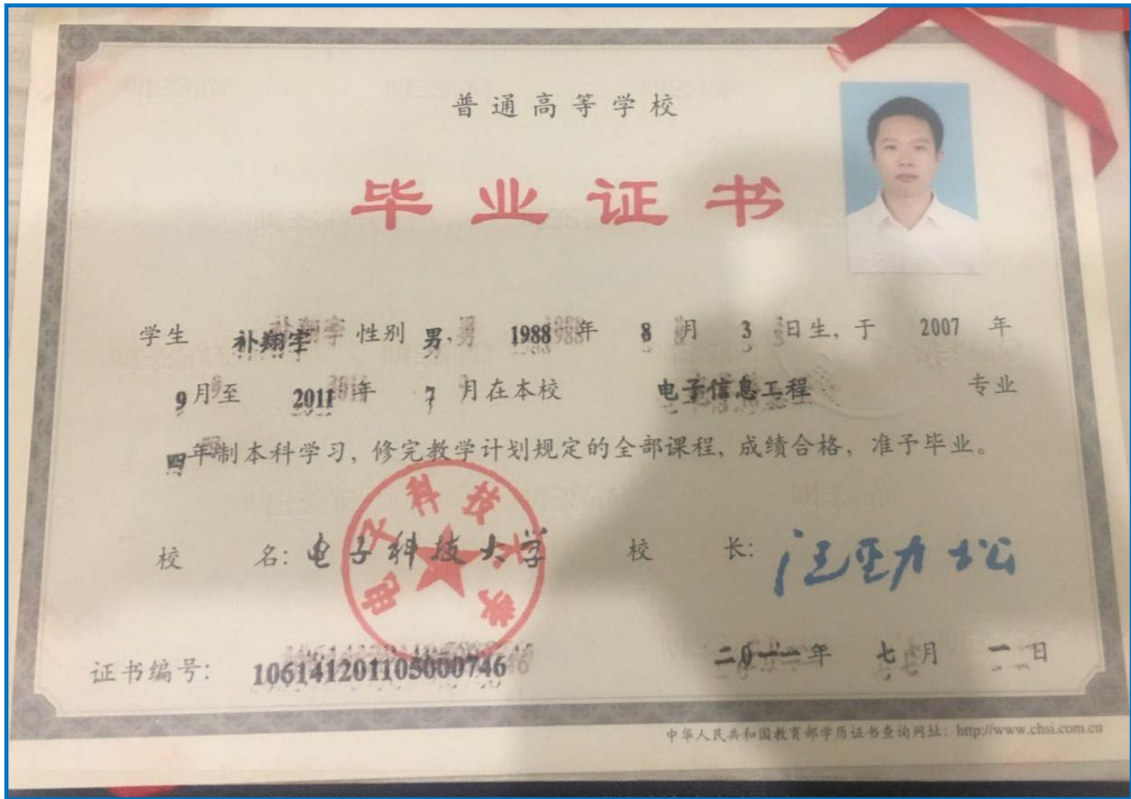 普通高等学校
毕业证书
学生 补翔宇 性别 男, 1988 年 8 月 3 日生, 于 2007 年
9 月至 2011 年 7 月在本校 电子信息工程 专业
四年制本科学习, 修完教学计划规定的全部课程, 成绩合格, 准予毕业。
校 名: 电子科技大学 校 长: 汪劲松
电子科技大学
证书编号: 106141201105000746 二〇一一年 七月 一日
中华人民共和国教育部学历证书查询网址: http://www.chsi.com.cn